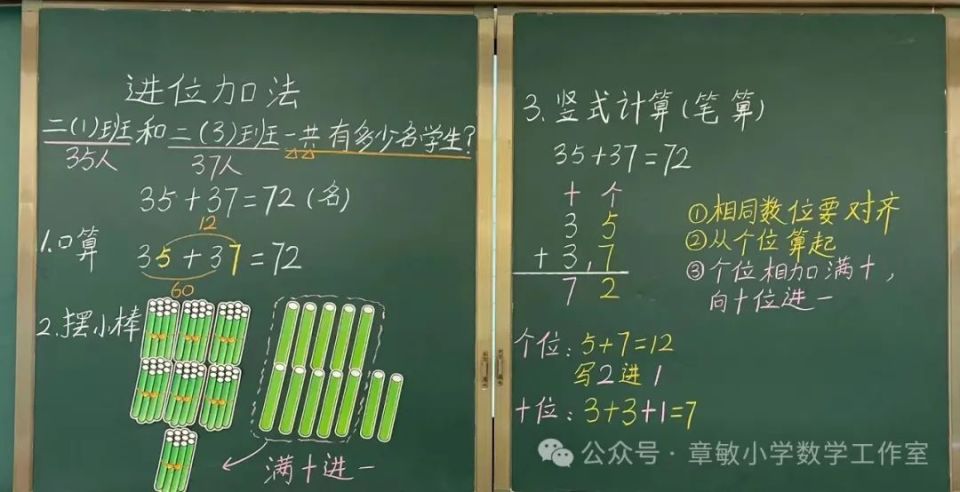 进位加法
二(1)班和二(3)班一共有多少名学生?
35人 37人
35+37=72(名)
12
1.口算 35+37=72
60
2.摆小棒
满十进一
3.竖式计算(笔算)
35+37=72
十 个
3 5
+3,7
7 2
①相同数位要对齐
②从个位算起
③个位相加满十,
向十位进一
个位:5+7=12
写2进1
十位:3+3+1=7
公众号·章敏小学数学工作室